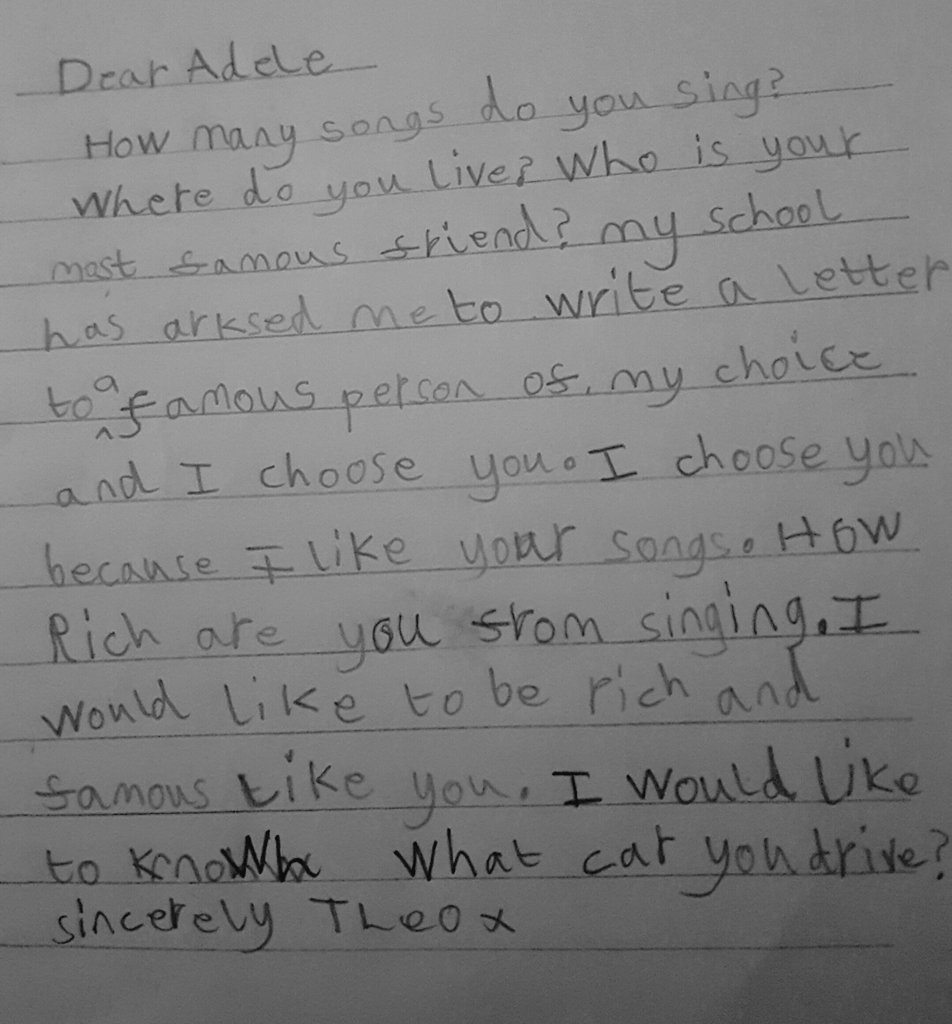 Dear Adele
How many songs do you sing?
Where do you live? Who is your
most famous friend? my school
has arksed me to write a letter
to a famous person of my choice
and I choose you. I choose you
because I like your songs. How
Rich are you from singing. I
would like to be rich and
famous like you. I would like
to know What car you drive?
sincerely Theo x